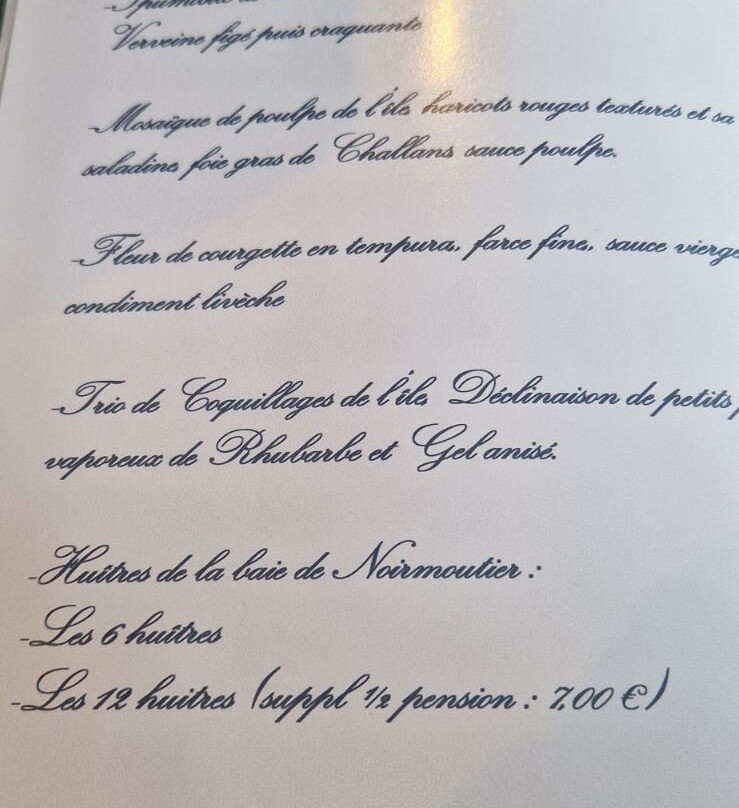 Verveine figé puis craquante
-Mosaïque de poulpe de l'île, haricots rouges texturés et sa
saladine, foie gras de Challans sauce poulpe.
-Fleur de courgette en tempura, farce fine, sauce vierge
condiment livèche
-Trio de Coquillages de l'île, Déclinaison de petits
vaporeux de Rhubarbe et Gel anisé.
-Huîtres de la baie de Noirmoutier :
-Les 6 huîtres
-Les 12 huitres (suppl ½ pension : 7,00 €)